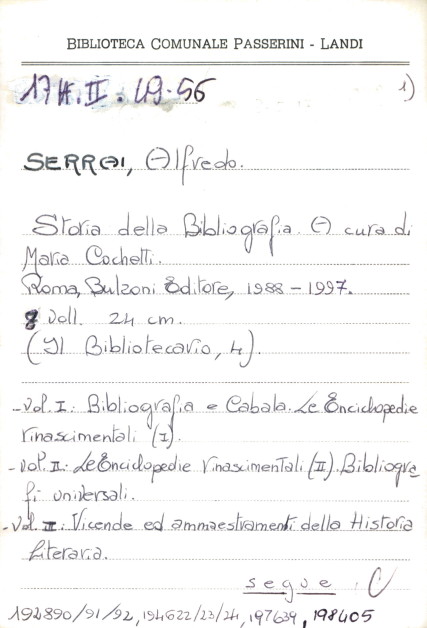 BIBLIOTECA COMUNALE PASSERINI - LANDI
17 H. II. 49-56 1)
SERRAI, Alfredo.
Storia della Bibliografia. A cura di
Maria Cochetti.
Roma, Bulzoni Editore, 1988 - 1997.
8 voll. 24 cm.
(Il Bibliotecario, 4).
- Vol. I: Bibliografia e Cabala. Le Enciclopedie
rinascimentali (I).
- Vol. II: Le Enciclopedie rinascimentali (II). Bibliogra
fi universali.
- Vol. III: Vicende ed ammaestramenti della Historia
literaria.
segue
192890/91/92, 194622/23/24, 197639, 198405